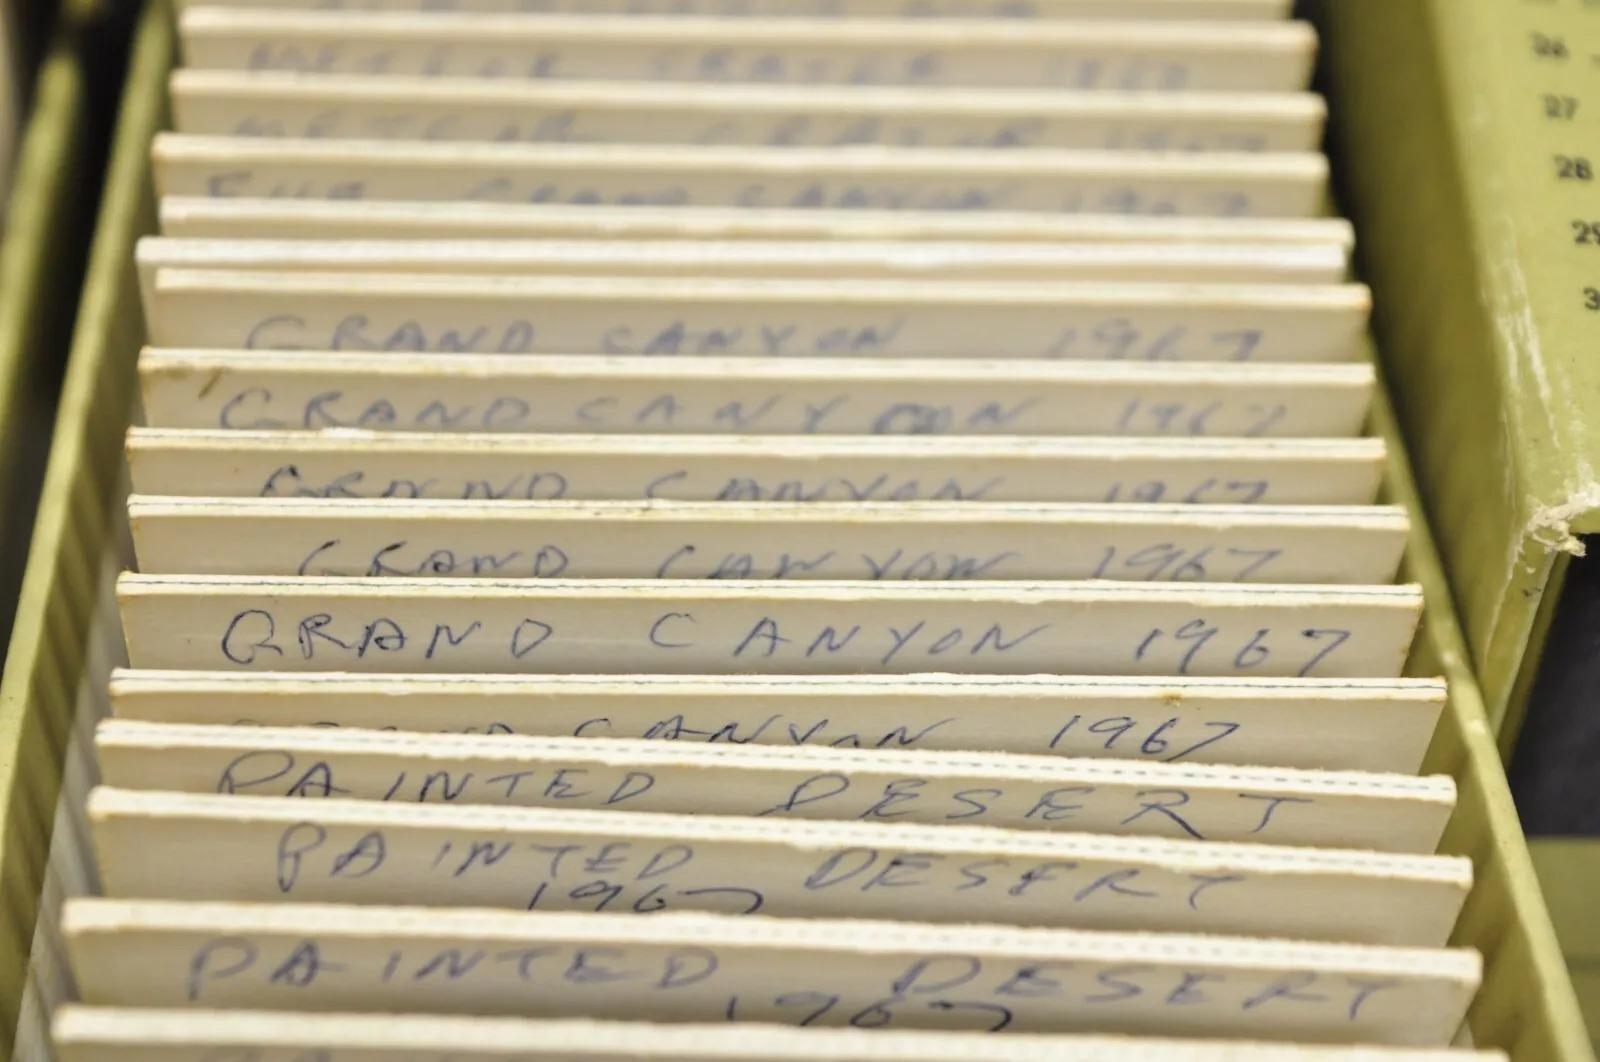 METEOR CRATER 1967
METEOR CRATER 1967
GRAND CANYON 1967
GRAND CANYON 1967
GRAND CANYON 1967
GRAND CANYON 1967
GRAND CANYON 1967
GRAND CANYON 1967
GRAND CANYON 1967
PAINTED DESERT
PAINTED DESERT
1967
PAINTED DESERT
1967
26
27
28
29